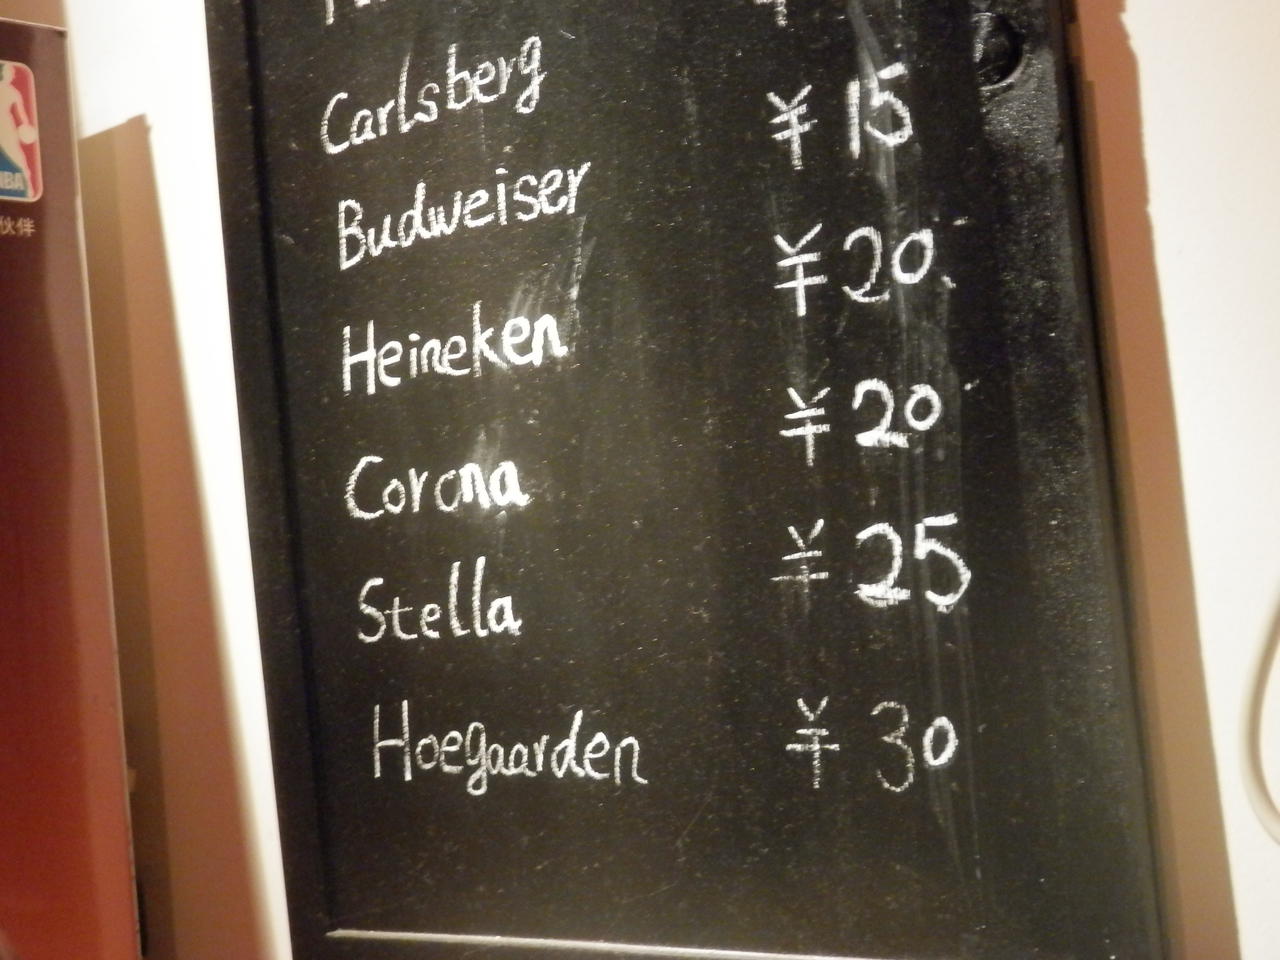 Carlsberg
Budweiser ¥ 15
Heineken ¥ 20
Corona ¥ 20
Stella ¥ 25
Hoegaarden ¥ 30
NBA
伙伴